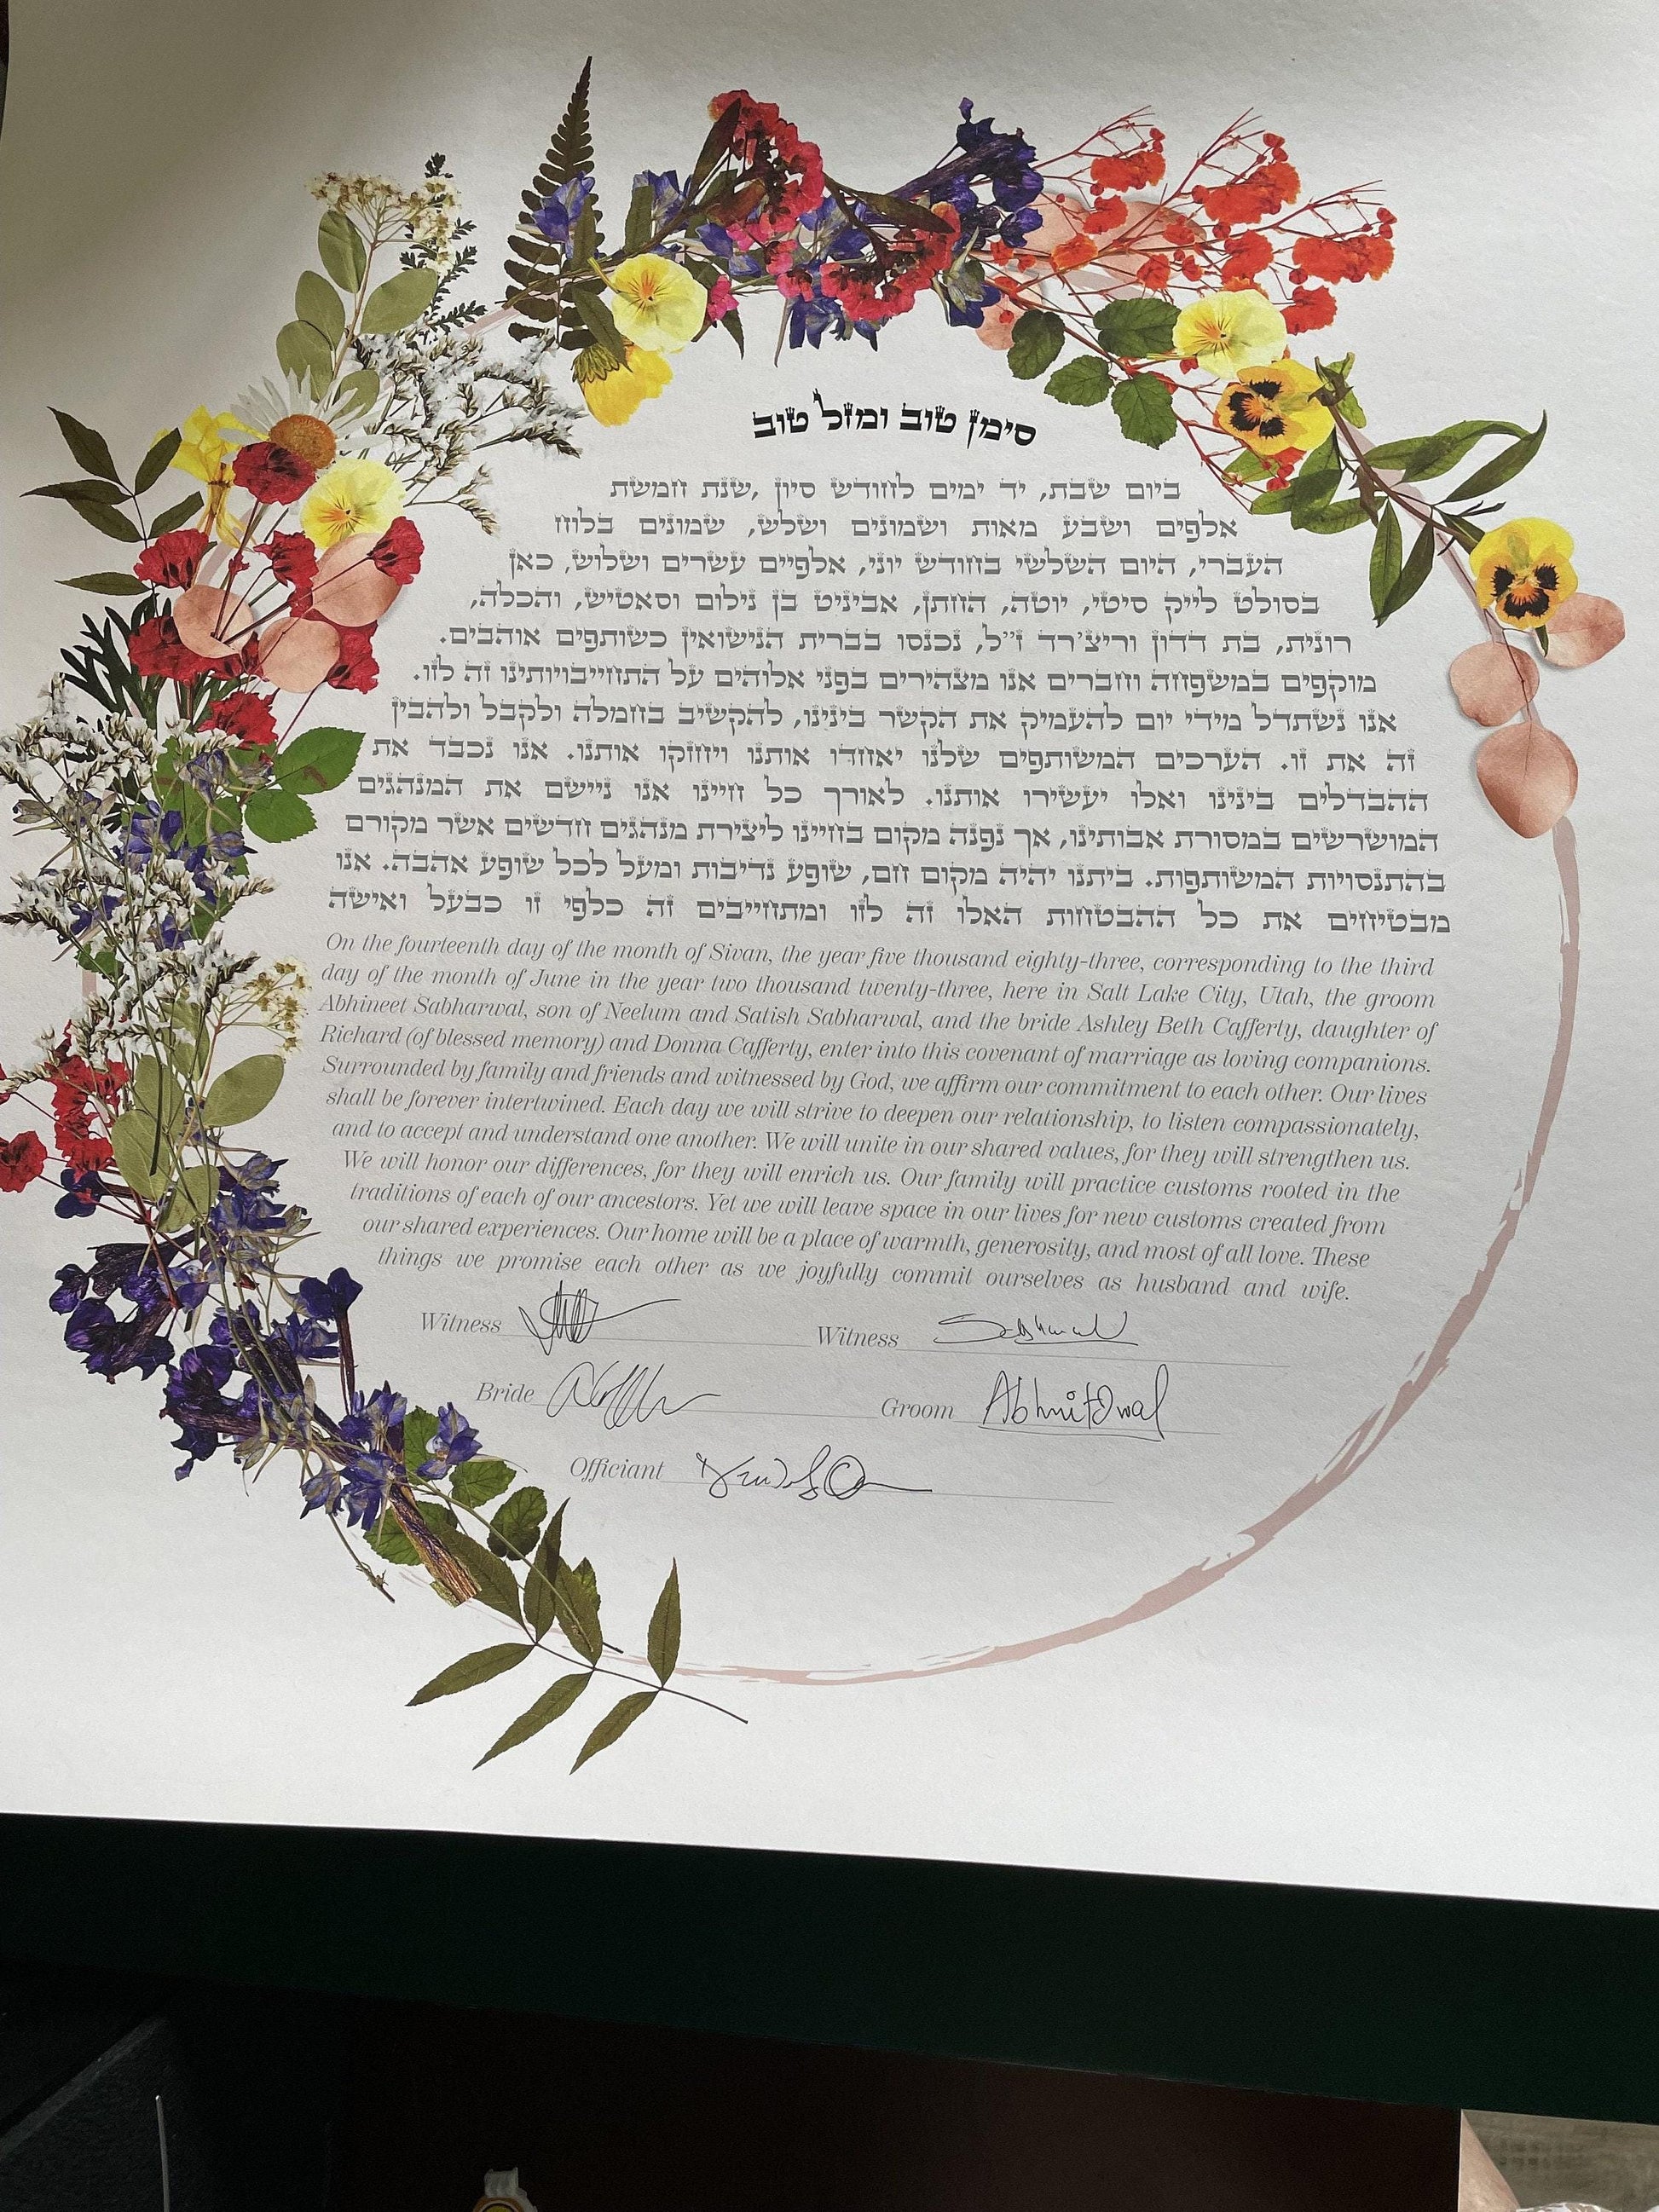 סימן טוב ומזל טוב
ביום שבת, יד ימים לחודש סיון ,שנת חמשת
אלפים ושבע מאות ושמונים ושלש, שמונים בלוח
העברי, היום השלשי בחודש יוני, אלפיים עשרים ושלוש, כאן
בסולט לייק סיטי, יוטה, החתן, אביניט בן נילום וסאטיש, והכלה,
רונית, בת דדון וריצ'רד ז"ל, נכנסו בברית הנישואין כשותפים אוהבים.
מוקפים במשפחה וחברים אנו מצהירים בפני אלוהים על התחייבויותינו זה לזו.
אנו נשתדל מידי יום להעמיק את הקשר בינינו, להקשיב בחמלה ולקבל ולהבין
זה את זו. הערכים המשותפים שלנו יאוחדו אותנו ויחזקו אותנו. אנו נכבד את
ההבדלים בינינו ואלו יעשירו אותנו. לאורך כל חיינו אנו ניישם את המנהגים
המושרשים במסורת אבותינו, אך נפנה מקום בחיינו ליצירת מנהגים חדשים אשר מקורם
בהתנסויות המשותפות. ביתנו יהיה מקום חם, שופע נדיבות ומעל לכל שופע אהבה. אנו
מבטיחים את כל ההבטחות האלו זה לזו ומתחייבים זה כלפי זו כבעל ואישה
On the fourteenth day of the month of Sivan, the year five thousand eighty-three, corresponding to the third
day of the month of June in the year two thousand twenty-three, here in Salt Lake City, Utah, the groom
Abhineet Sabharwal, son of Neelum and Satish Sabharwal, and the bride Ashley Beth Cafferty, daughter of
Richard (of blessed memory) and Donna Cafferty, enter into this covenant of marriage as loving companions.
Surrounded by family and friends and witnessed by God, we affirm our commitment to each other. Our lives
shall be forever intertwined. Each day we will strive to deepen our relationship, to listen compassionately,
and to accept and understand one another. We will unite in our shared values, for they will strengthen us.
We will honor our differences, for they will enrich us. Our family will practice customs rooted in the
traditions of each of our ancestors. Yet we will leave space in our lives for new customs created from
our shared experiences. Our home will be a place of warmth, generosity, and most of all love. These
things we promise each other as we joyfully commit ourselves as husband and wife.
Witness Witness
Bride Groom
Officiant